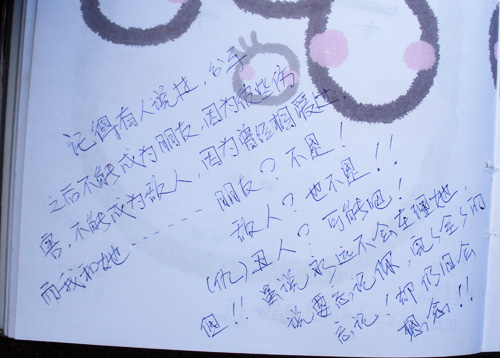 记得有人说过,分手
之后不能成为朋友,因为彼此伤
害,不能成为敌人,因为曾经相爱过.
而我和她------朋友?不是!
敌人?也不是!!
(仇)丑人?可能吧!
但!!虽说永远不会在理她,
说要忘记你,完完全全的
忘记!却仍旧会
想念!!